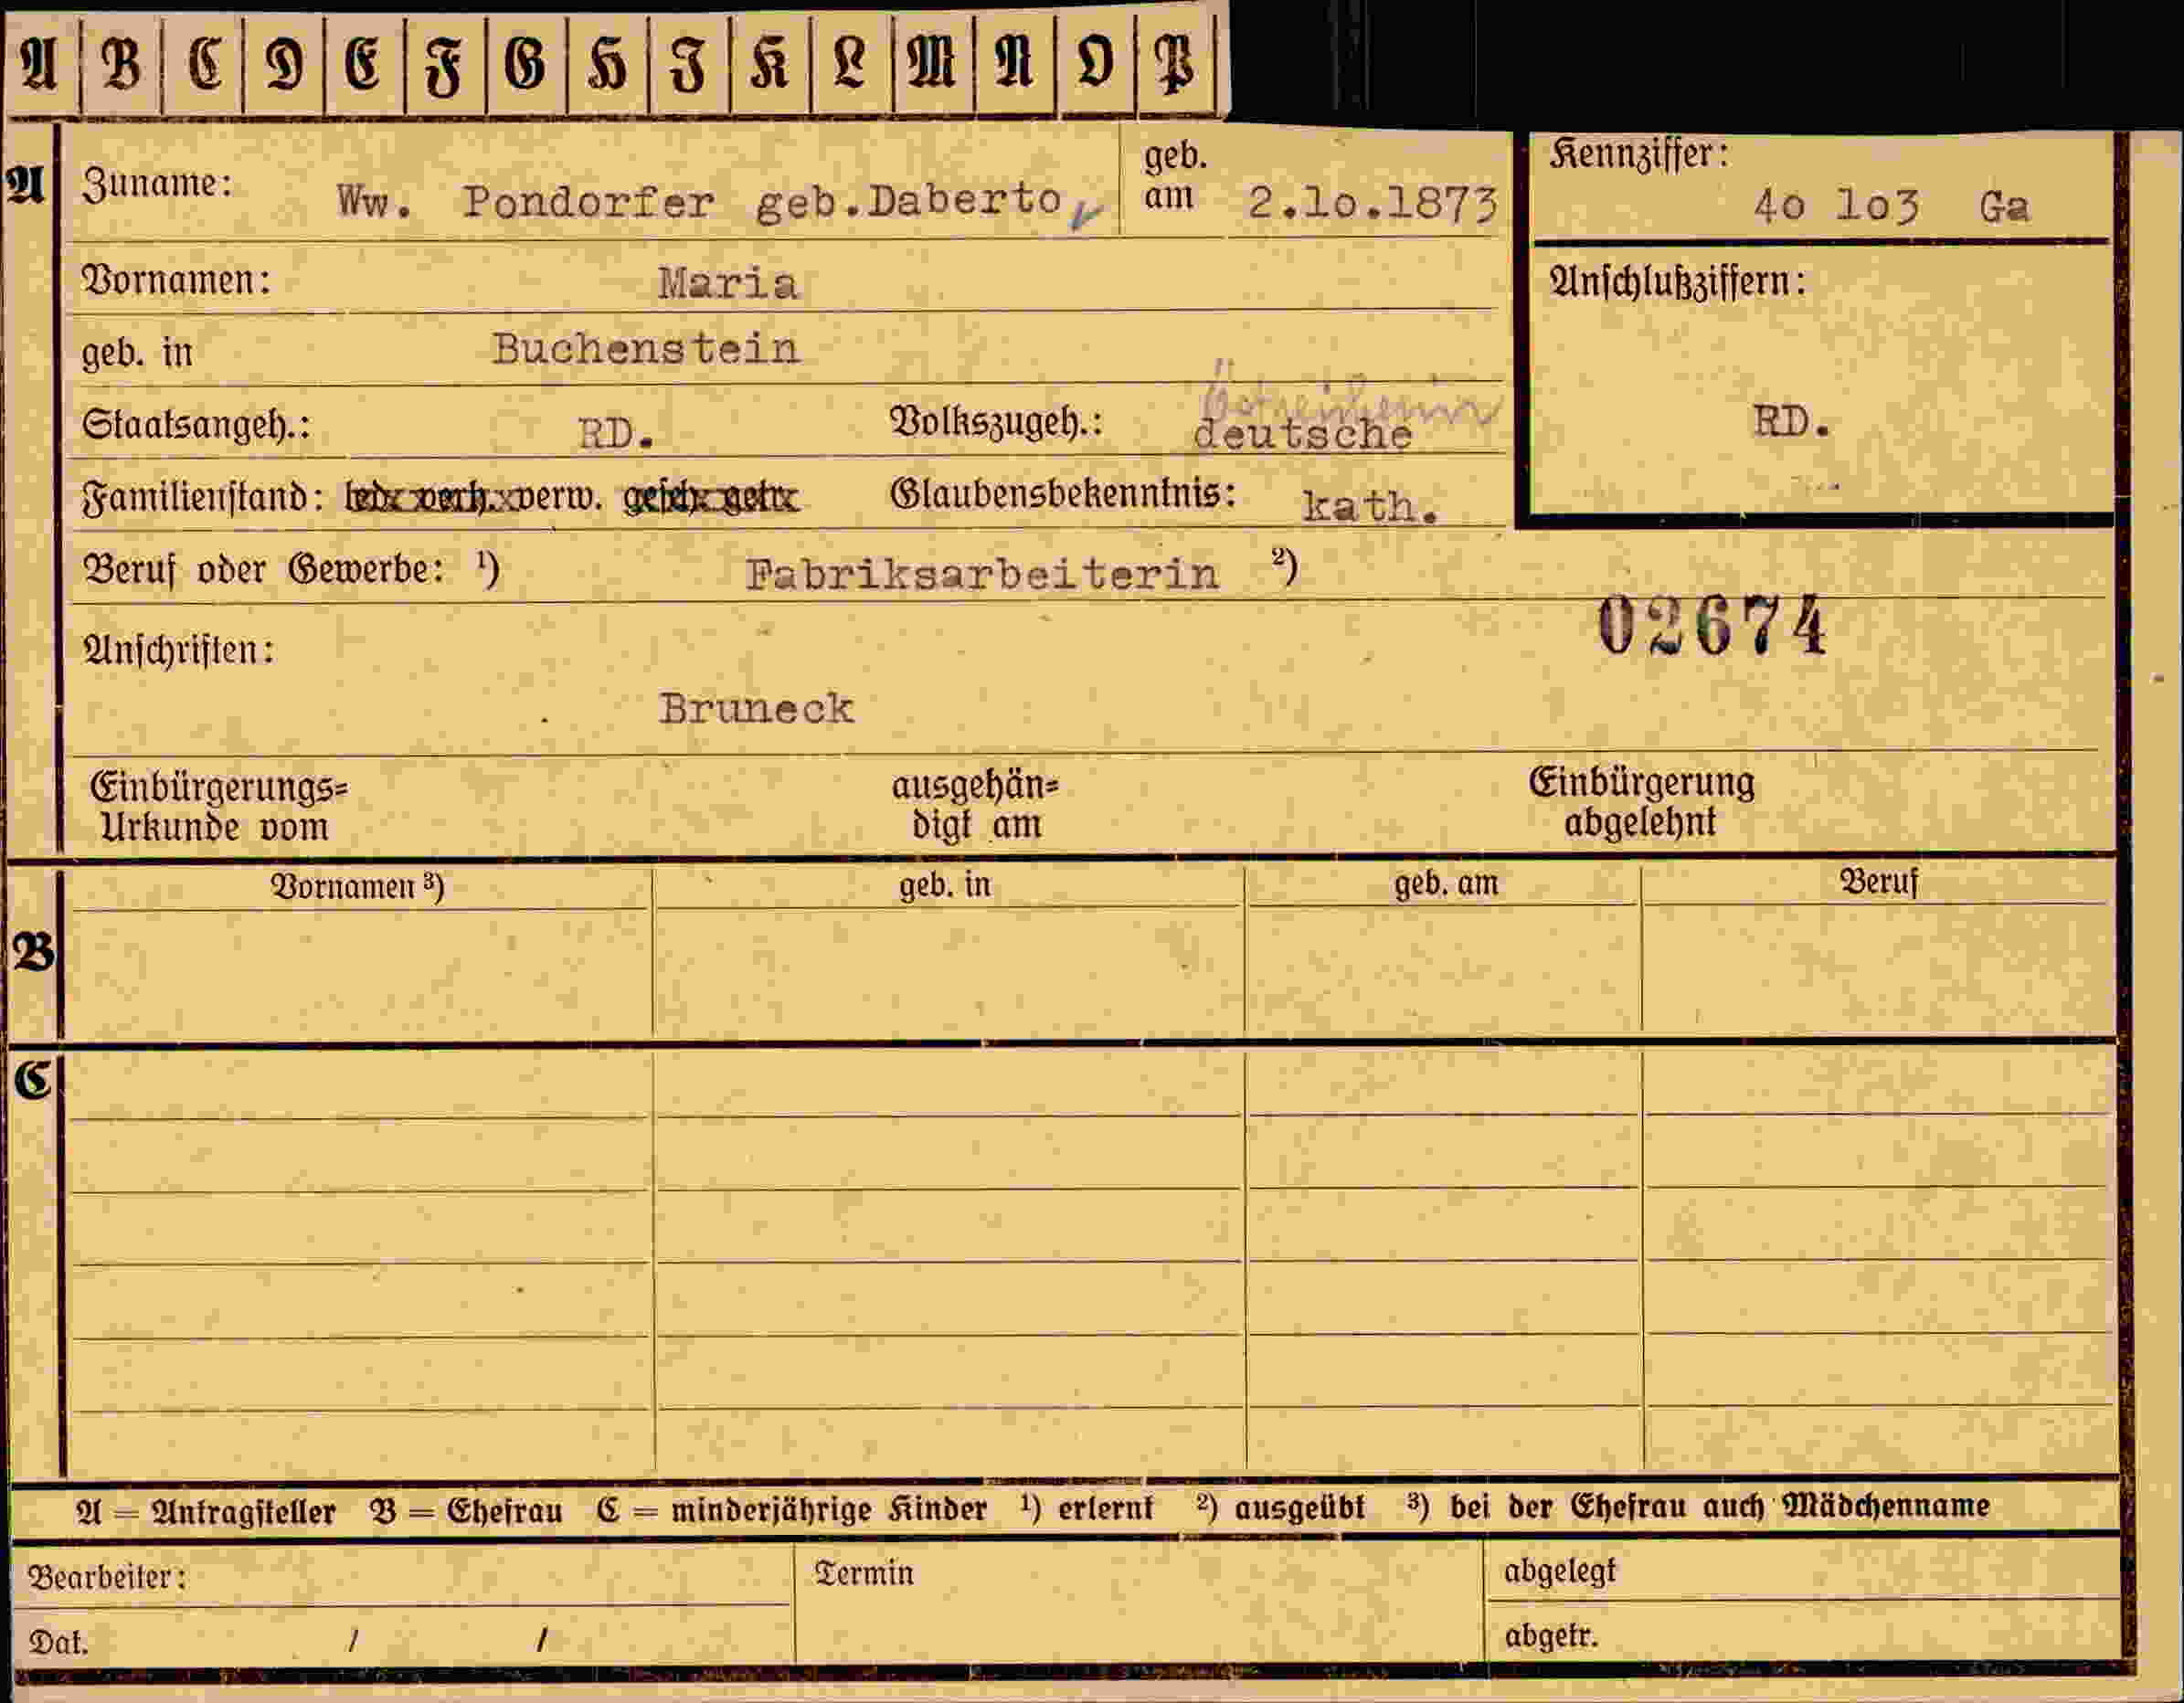 A B C D E F G H I K L M N O P
A Zuname: Ww. Pondorfer geb.Daberto geb. am 2.lo.1873
Kennziffer: 4o lo3 Ga
Vornamen: Maria
Anschlußziffern: RD.
geb. in Buchenstein
Staatsangeh.: RD. Volkszugeh.: deutsche
Familienstand: led. verh. verw. gesch. getr. Glaubensbekenntnis: kath.
Beruf oder Gewerbe: ¹) Fabriksarbeiterin ²)
02674
Anschriften:
Bruneck
Einbürgerungs=
Urkunde vom
ausgehän=
digt am
Einbürgerung
abgelehnt
B Vornamen ³) geb. in geb. am Beruf
C
A = Antragsteller B = Ehefrau C = minderjährige Kinder ¹) erlernt ²) ausgeübt ³) bei der Ehefrau auch Mädchenname
Bearbeiter: Termin abgelegt
Dat. / / abgetr.